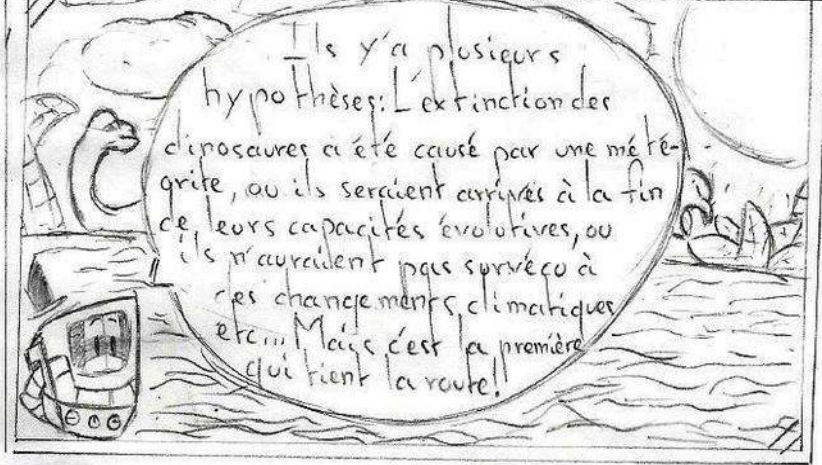 Ils y'a plusieurs
hypothèses: L'extinction des
dinosaures a été causé par une mété-
orite, ou ils seraient arrivés à la fin
de leurs capacités évolutives, ou
ils n'auraient pas survéço à
des changements climatiques
etc... Mais c'est la première
qui tient la route!